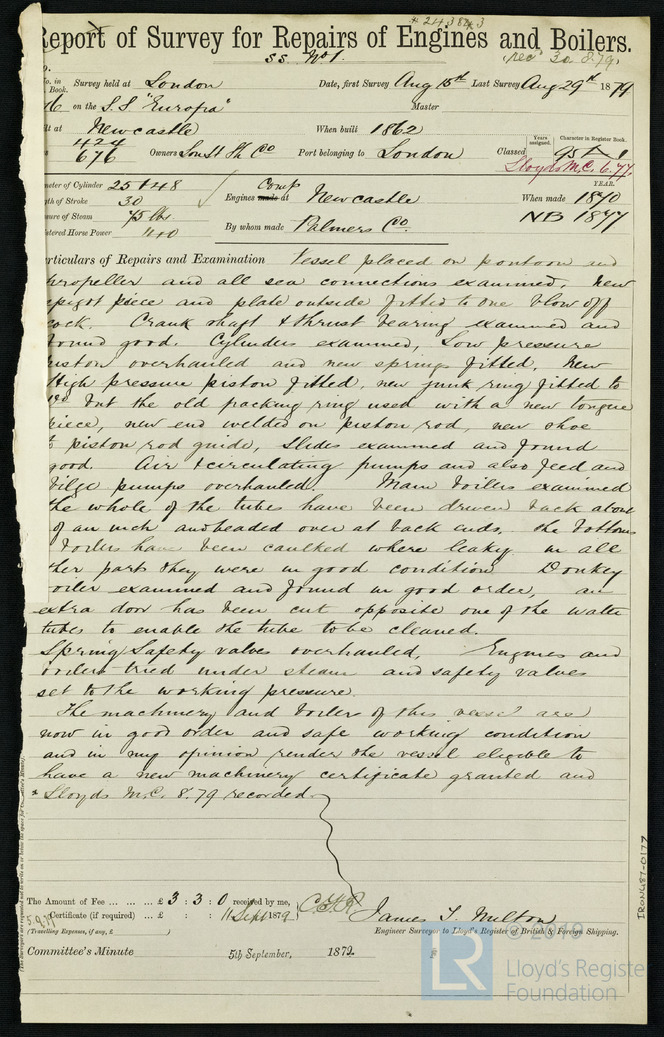 * 243843
Report of Survey for Repairs of Engines and Boilers.
SS. No 1.
(Rec 30.8.79)
No. in Book. Survey held at London Date, first Survey Aug 15th Last Survey Aug 29th 1879
16 on the S.S. "Europa" Master
Newcastle When built 1862
424
676 Owners Lon St Sh Co Port belonging to London
Years assigned. Character in Register Book.
Classed 95 A 1
Lloyds M.C. 6.77
YEAR.
meter of Cylinder 25 + 48
th of Stroke 30
ure of Steam 75 lbs
tered Horse Power 140
Comp
Engines made at Newcastle When made 1870
NB 1877
By whom made Palmers Co.
rticulars of Repairs and Examination Vessel placed on pontoon and
propeller and all sea connections examined, new
spigot piece and plate outside fitted to one blow off
cock. Crank shaft & thrust bearing examined and
found good. Cylinders examined, Low pressure
piston overhauled and new springs fitted, New
High pressure piston fitted, new junk ring fitted to
do but the old packing ring used with a new tongue
piece, new end welded on piston rod, new shoe
to piston rod guide, slides examined and found
good. Air & circulating pumps and also feed and
bilge pumps overhauled. Main boilers examined
the whole of the tubes have been driven back about
of an inch and beaded over at back ends. the bottoms
boilers have been caulked where leaky in all
ther parts they were in good condition Donkey
boiler examined and found in good order, an
extra door has been cut opposite one of the water
tubes to enable the tube to be cleaned.
Spring Safety valves overhauled, Engines and
boilers tried under steam and safety valves
set to the working pressure.
The machinery and boilers of this vessel are
now in good order and safe working condition
and in my opinion render the vessel eligible to
have a new machinery certificate granted and
* Lloyds M.C. 8.79 recorded.
The Amount of Fee ... ... ... £ 3 : 3 : 0 received by me,
5.9.79 Certificate (if required) ... £ : : 11 Sept 1879
(Travelling Expenses, if any, £ )
James T. Milton
Engineer Surveyor to Lloyd's Register of British & Foreign Shipping.
Committee's Minute 5th September, 1879.
IRON487-0177
LR
© 2019
Lloyd's Register
Foundation